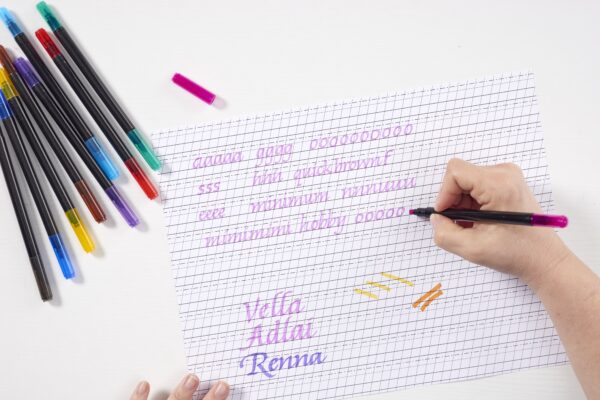 aaaaa gggg oooooooooo
sss hhh quickbrownf
eeee minimum
mimimimi hobby ooooo
Vella
Adlai
Renna